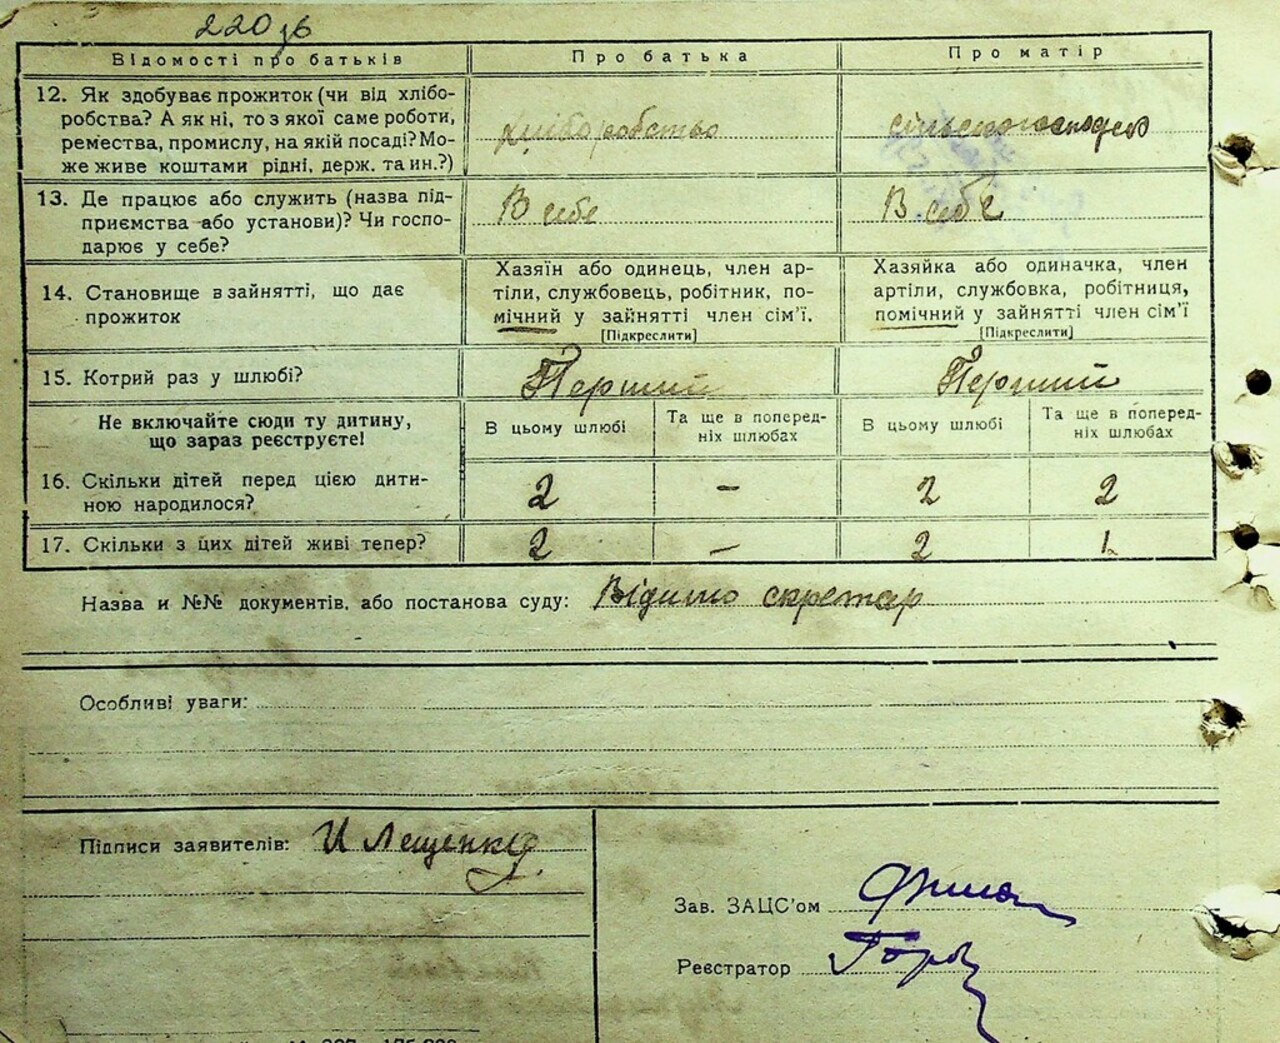 220 зв
Відомості про батьків
Про батька
Про матір
12. Як здобуває прожиток (чи від хлібо-
робства? А як ні, то з якої саме роботи,
ремества, промислу, на якій посаді? Мо-
же живе коштами рідні, держ. та ин.?)
хліборобство
13. Де працює або служить (назва під-
приємства або установи)? Чи госпо-
дарює у себе?
В себе
В себе
14. Становище в зайнятті, що дає
прожиток
Хазяїн або одинець, член ар-
тіли, службовець, робітник, по-
мічний у зайнятті член сім’ї.
[Підкреслити]
Хазяйка або одиначка, член
артіли, службовка, робітниця,
помічний у зайнятті член сім’ї
[Підкреслити]
15. Котрий раз у шлюбі?
Перший
Перший
Не включайте сюди ту дитину,
що зараз реєструєте!
В цьому шлюбі
Та ще в поперед-
ніх шлюбах
В цьому шлюбі
Та ще в поперед-
ніх шлюбах
16. Скільки дітей перед цією дити-
ною народилося?
2
–
2
2
17. Скільки з цих дітей живі тепер?
2
–
2
1
Назва и №№ документів, або постанова суду: Відимо скретар
Особливі уваги:
Підписи заявителів: И Лещенко
Зав. ЗАЦС’ом
Реєстратор